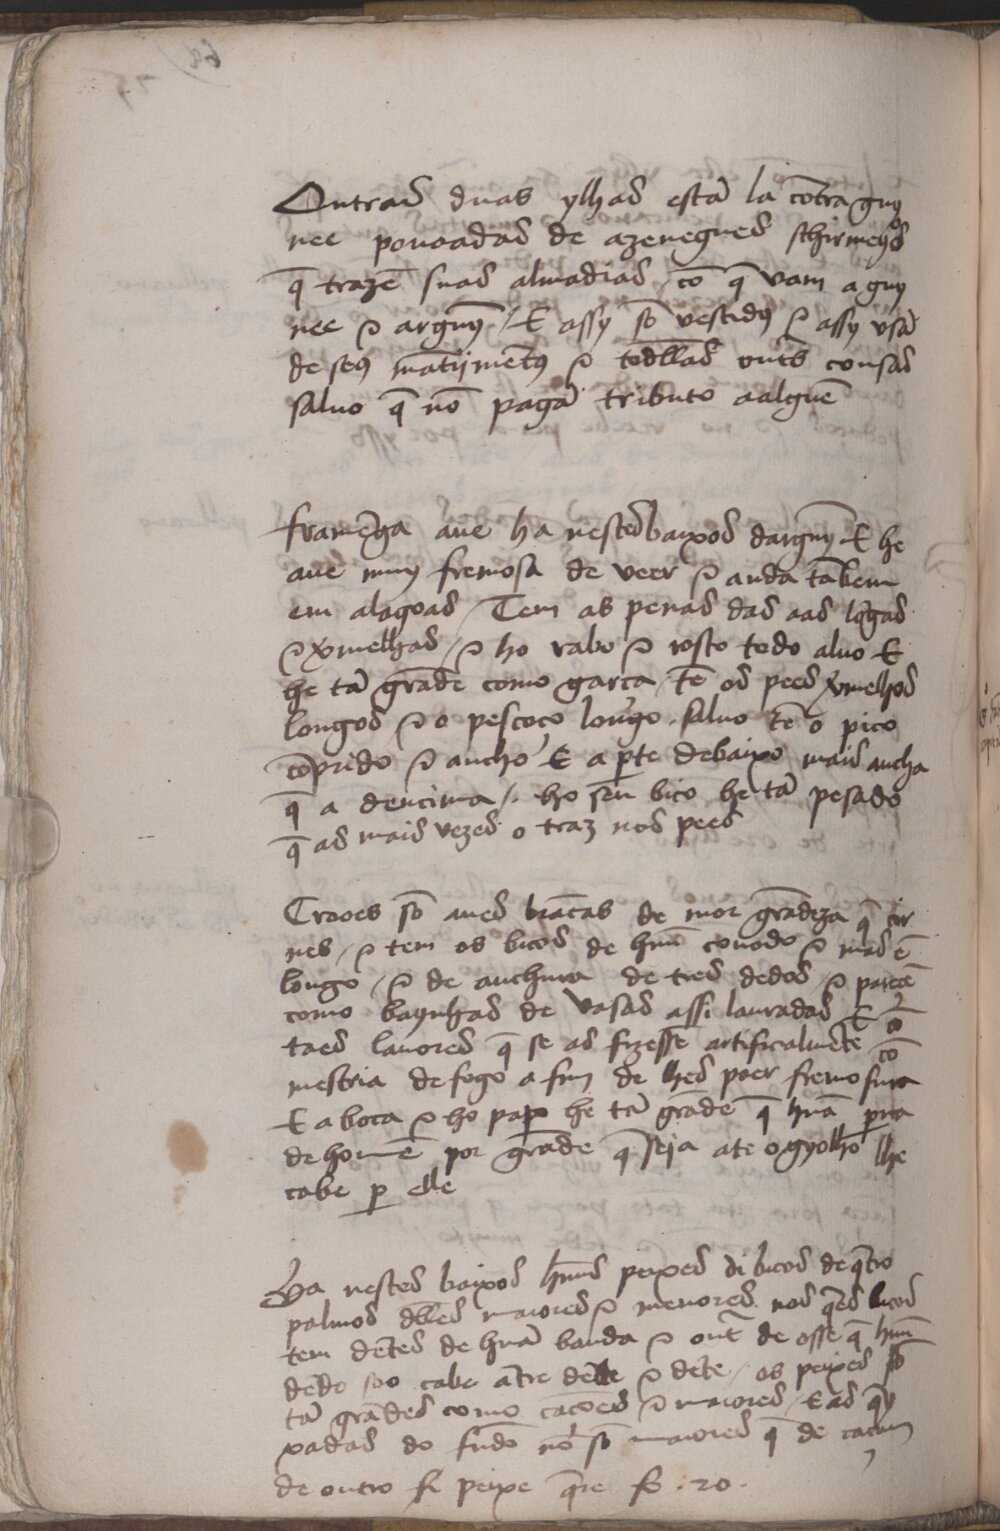 Outras duas ylhas estã la cõtra guy
nee pouoadas de azenegues schirmeyros
q̃ trazẽ suas almadias / cõ q̃ vam a guy
nee ⁊ arguỹ / E assy sõ vestidos ⁊ assy vsã
de seus mãtijmẽtos ⁊ todallas outˢ cousas
saluo q̃ nõ pagã tributo aalguẽ
framẽga aue ha nestes baixos darguỹ E he
aue muy fremosa de veer ⁊ anda tãbem
em alagoas / Tem as penas das aas lõgas
⁊ ṽmelhas / ⁊ ho rabo ⁊ rosto todo aluo E
he tã grãde como garca / tẽ os pees ṽmelhos
longos ⁊ o pescoço longo . saluo tẽ o pico
cõprido ⁊ ancho E a p̱te debaixo mais ancha
q̃ a dencima /. ho seu bico he tã pesado
q̃ as mais vezes o traz nos pees
Crooes sõ aues brãcas de mor grãdeza q̃ cir
nes / ⁊ tem os bicos de huũ couodo ⁊ mais ẽ
longo / ⁊ de anchura de tres dedos ⁊ parecẽ
como baynhas de vasas assi lauradas E cõ
taes lauores q̃ se as fizessẽ artificalmẽte cõ
mestria de fogo a fim de lhes poer fremosura
E a boca ⁊ ho papo he tã grãde q̃ huã p̱na
de homẽ por grãde q̃ seja ate o gyolho lhe
cabe p̱ elle
Ha nestes baixos huũs peixes di bicos de q̃tro
palmos dellˢ maiores ⁊ menores nos q̃es bicos
tem dẽtes de huã banda ⁊ outˢ de osse q̃ huũ
dedo soo cabe ãtre dẽte ⁊ dẽte / os peixes sõ
tã grãdes como cacoes ⁊ maiores / E as q̃y
xadas do fũdo nõ sõ maiores q̃ de cacam
de outro fi peixe q̃re fo . 20 .